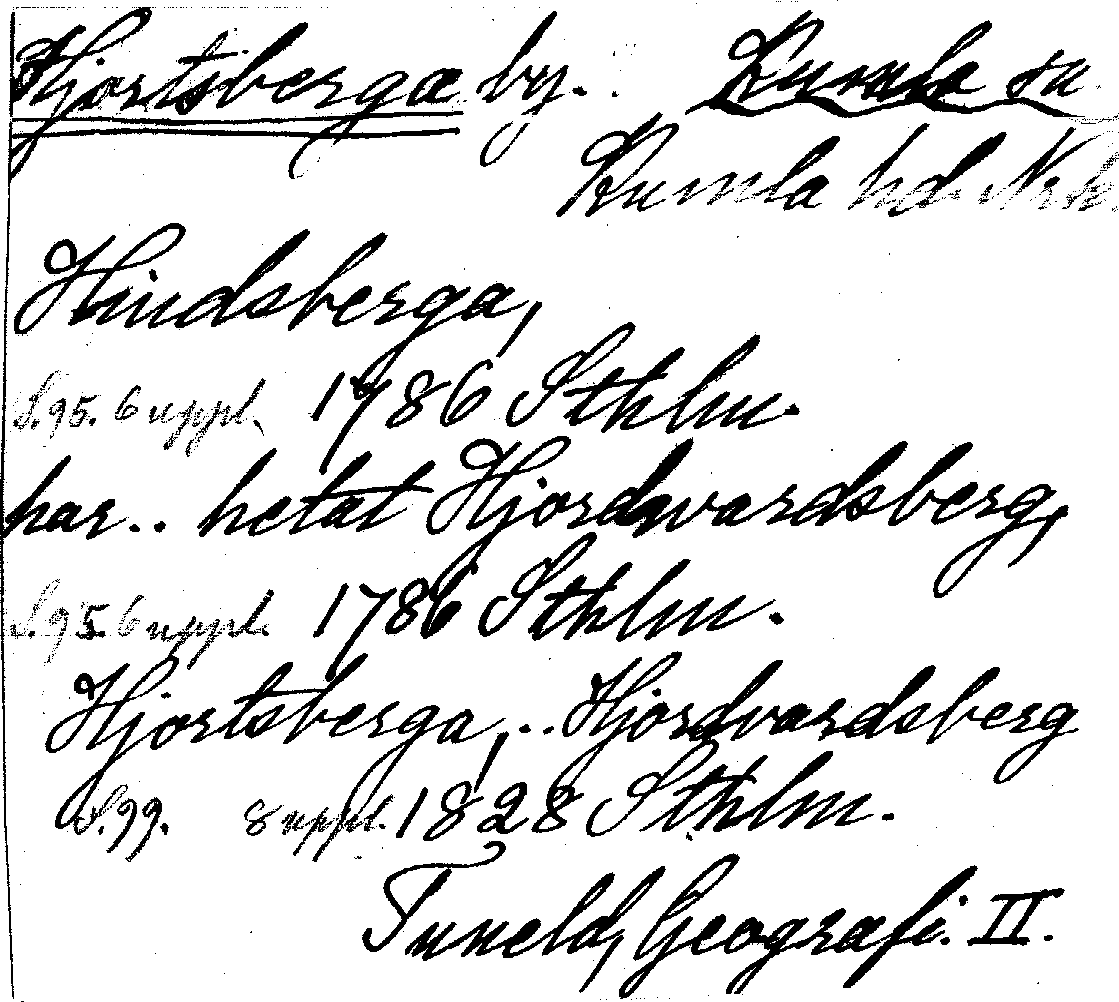 Hjortsberga by. Kumla sn
Kumla hd. Nrk.
Hindsberga,
S.95. 6 uppl. 1786 Sthlm.
har.. hetat Hjordvardsberg,
S.95. 6 uppl. 1786 Sthlm.
Hjortsberga,.. Hjordvardsberg
S.99. 8 uppl. 1828 Sthlm.
Tuneld, Geografi. II.